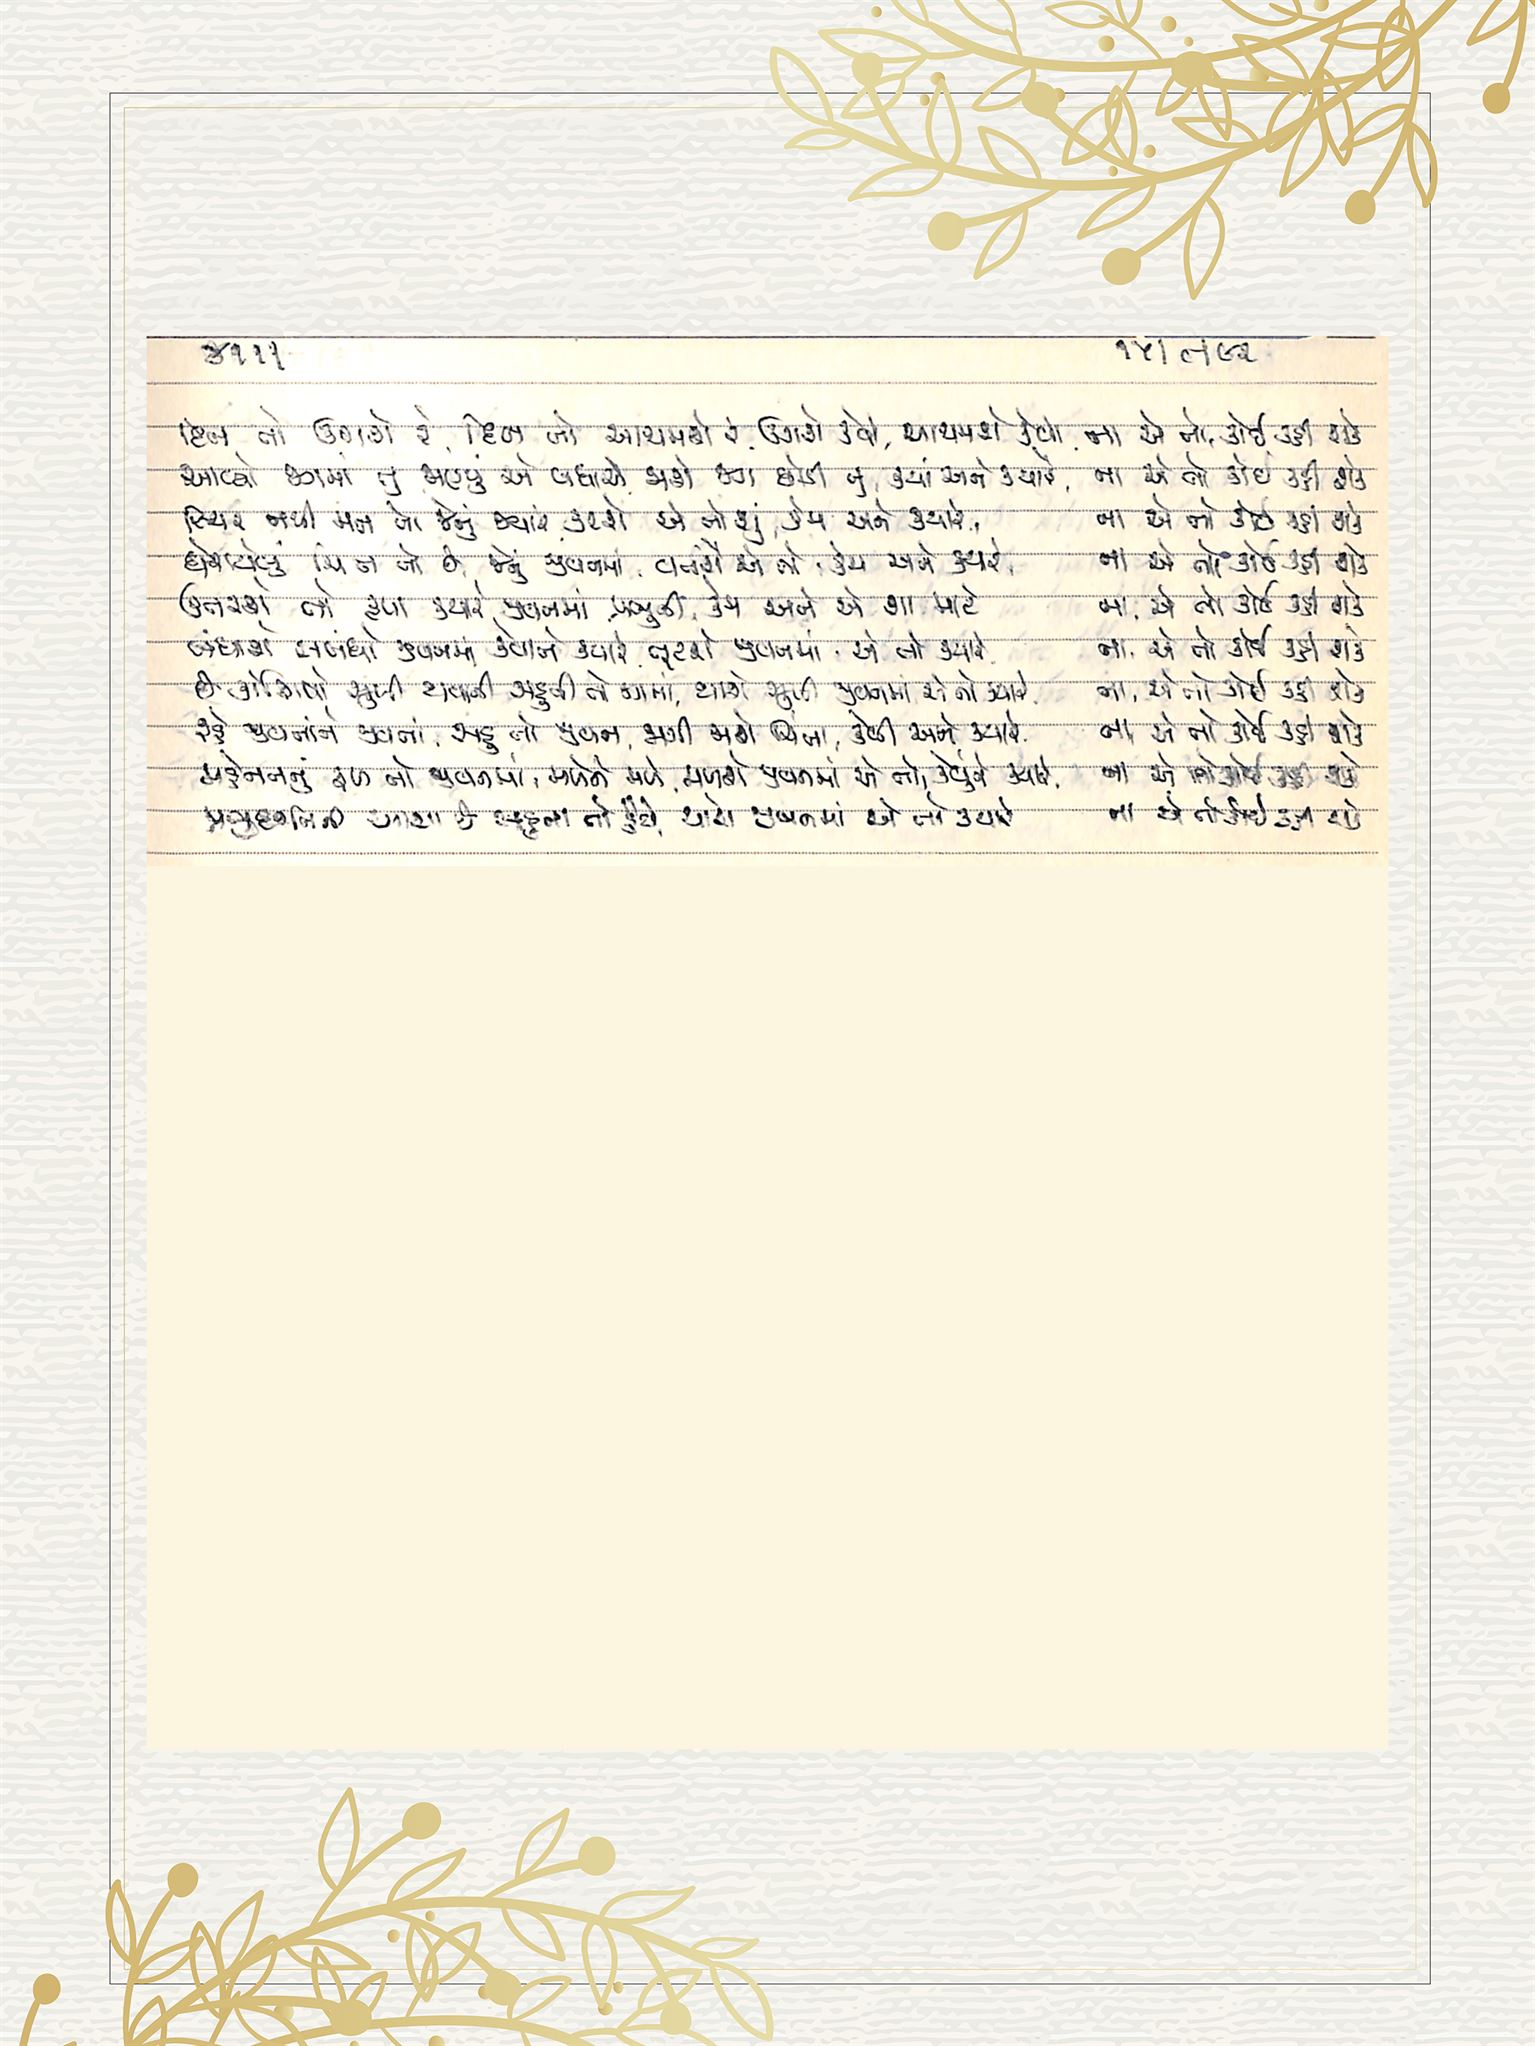 ૪૧૧૧ ૧૫/૮/૯૨
દિન તો ઉગશે રે, દિન તો આથમશે રે, ઉગશે કેવો, આથમશે કેવો, ના એ તો, કોઈ કહી શકે
આવ્યો જગમાં તું ભલે એ જગ છોડી તું, ક્યાં અને ક્યારે, ના એ તો કોઈ કહી શકે
સ્થિર નથી મન તો જેનું ક્યારે કરશે એ તો શું, કેમ અને ક્યારે, ના એ તો કોઈ કહી શકે
ચિત્ત તો છે જેનું જીવનમાં, વર્તશે એ તો, કેમ અને ક્યારે, ના એ તો કોઈ કહી શકે
ઉતરશે તો કૃપા ક્યારે જીવનમાં પ્રભુની, કેમ અને એ શા માટે ના, એ તો કોઈ કહી શકે
બંધાશે સબંધો જીવનમાં, કેવાને ક્યારે, તૂટશે જીવનમાં, એ તો ક્યારે ના, એ તો કોઈ કહી શકે
છે કોશિશો સુખી થવાની સહુની તો જગમાં, થાશે સુખી જીવનમાં એ તો ક્યારે ના, એ તો કોઈ કહી શકે
જીવનને જીવનમાં, સહુ તો જીવન, ચિંતા, કેવી અને, ક્યારે, ના, એ તો કોઈ કહી શકે
મહેનતનું ફળ તો જીવનમાં, મળેને મળે, મળશે જીવનમાં એ તો, કેવુંને ક્યારે, ના એ તો કોઈ કહી શકે
પ્રભુદર્શનની આશા છે સહુના તો હૈયે, થાશે જીવનમાં એ તો ક્યારે ના એ તો કોઈ કહી શકે